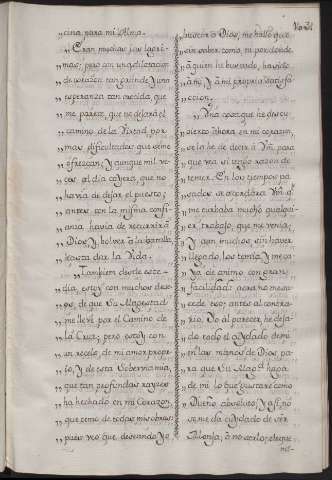 „cina, para mi Alma.
„Eran muchas las lagri-
„mas; pero con una dilatacion
„de corazon tan grande, y una
„esperanza tan crecida, que
„me parece, que no dejará el
„camino de la Virtud, por
„mas dificultades que se me
„ofrezcan; y aunque mil ve-
„ces al dia cayera, que no
„havia de dejar el puesto;
„antes con la misma confi-
„anza havia de recurrir á
„Dios, y bolver á la batalla
„hasta dar la Vida.
„Tambien desde este
„dia, estoy con muchos dese-
„os, de que Su Magestad
„me lleve por el Camino de
„la Cruz; pero estoy con
„un recelo, de mi amor prop-
„rio, y de esta Sobervia mia,
„que tan profundas rayzes
„ha hechado en mi Corazon,
„que temo de todas mis obras:
„pues veo que deseando yo,
„buscar á Dios, me hallo que
„sin saber como, ni por donde
„á quien he buscado, ha sido
„á mi, y á mi propria satisfa-
„ccion.
„Una cosa, que he descu-
„vierto áhora en mi corazon,
„se la he de decir á Vm. para
„que vea si tengo razon de
„temer. En los tiempos pa-
„sados se acordará Vm. qe.
„me turbaba mucho qualqui-
„er, trabajo, que me venia;
„y aun muchos, sin haver
„llegado, los temia, y me ca-
„ia de animo con gran
„facilidad: aora no me su-
„cede eso; antes al contra-
„rio. Yo al parecer, he deja-
„do todo el cuydado de mi
„en las manos de Dios, pa-
„ra que Su Magd. haga
„de mi lo que gustare como
„Dueño absoluto; y asi, no
„se me da cuydado de ser
„Monja, ó no serlo; de que